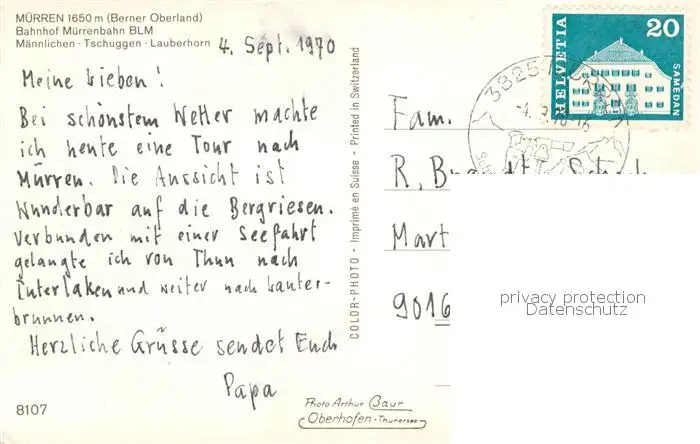 MÜRREN 1650 m (Berner Oberland)
Bahnhof Mürrenbahn BLM
Männlichen - Tschuggen - Lauberhorn
4. Sept. 1970
Meine Lieben!
Bei schönstem Wetter machte
ich heute eine Tour nach
Mürren. Die Aussicht ist
wunderbar auf die Bergriesen.
Verbunden mit einer Seefahrt
gelangte ich von Thun nach
Interlaken und weiter nach Lauter-
brunnen.
Herzliche Grüsse sendet Euch
Papa
8107
Photo Arthur Baur
Oberhofen - Thunersee
COLOR-PHOTO - Imprimé en Suisse - Printed in Switzerland
HELVETIA
20
SAMEDAN
3825 MÜRREN
Fam.
R.
Mart
9016
privacy protection
Datenschutz